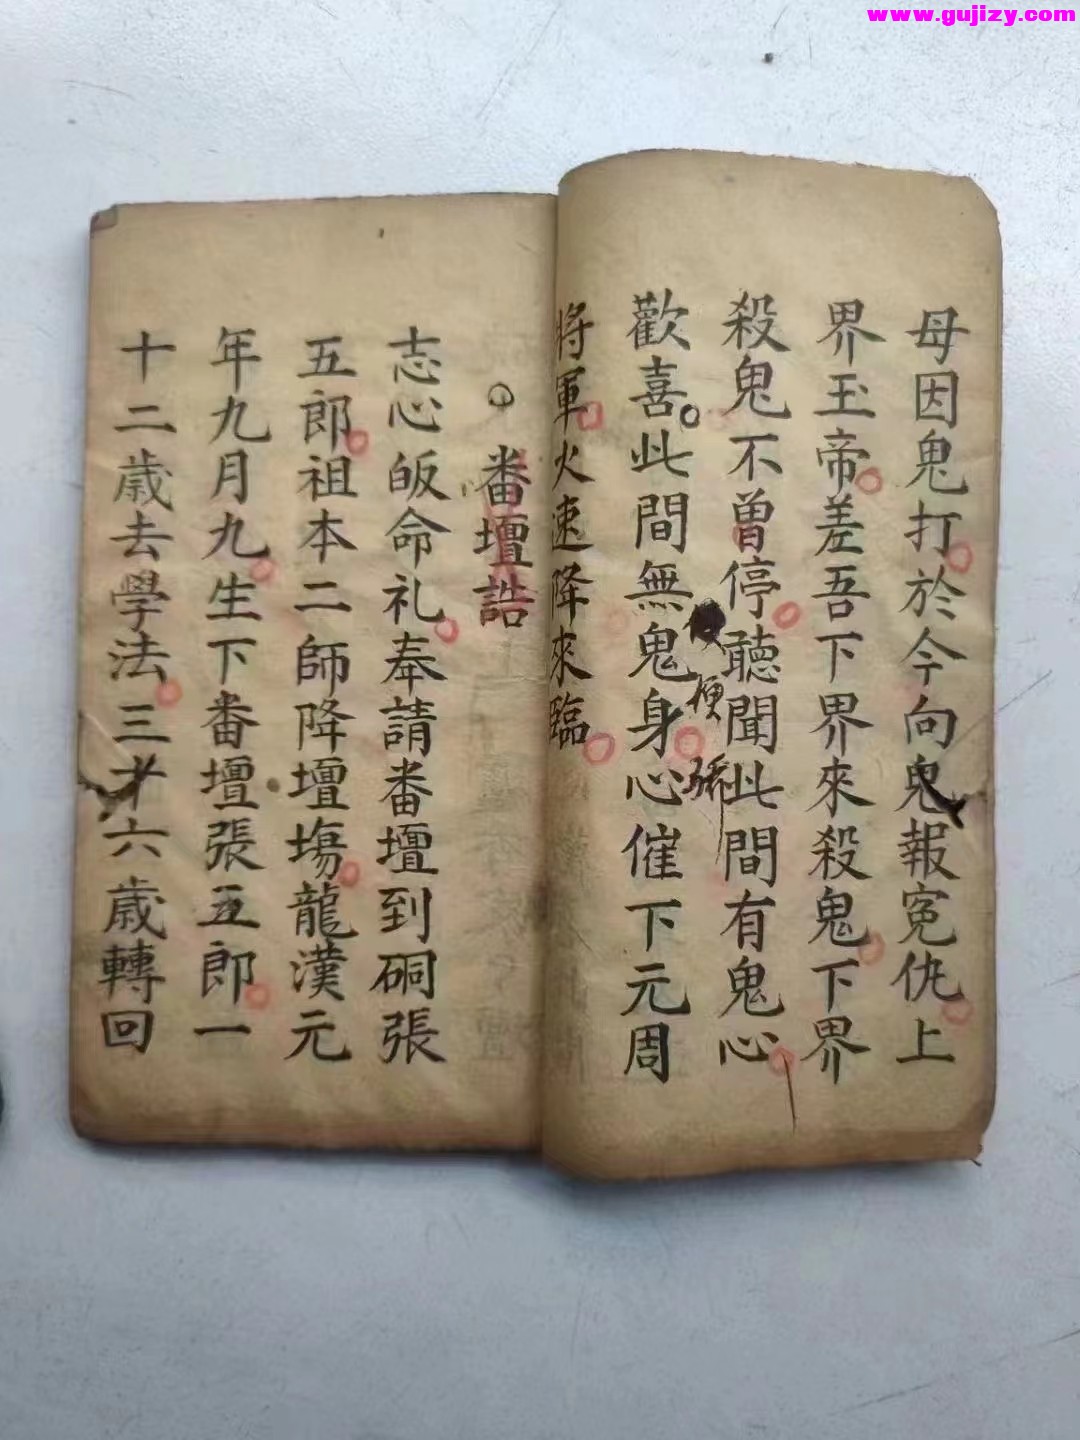 www.gujizy.com
母因鬼打於今向鬼報冤仇上
界玉帝差吾下界來殺鬼下界
殺鬼不曾停聽聞此間有鬼心
便
歡喜此間無鬼身心催下元周
將軍火速降來臨
番壇誥
志心皈命礼奉請番壇到硐張
五郎祖本二師降壇塲龍漢元
年九月九生下番壇張五郎一
十二歲去學法三十六歲轉回